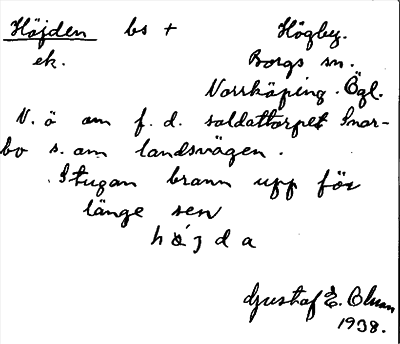 Höjden bs + Högby.
ek. Borgs sn.
Norrköping. Ögl.
N. ö om f. d. soldattorpet Snar-
bo s. om landsvägen.
Stugan brann upp för
länge sen
höjda
Gustaf E. Olsson
1938.